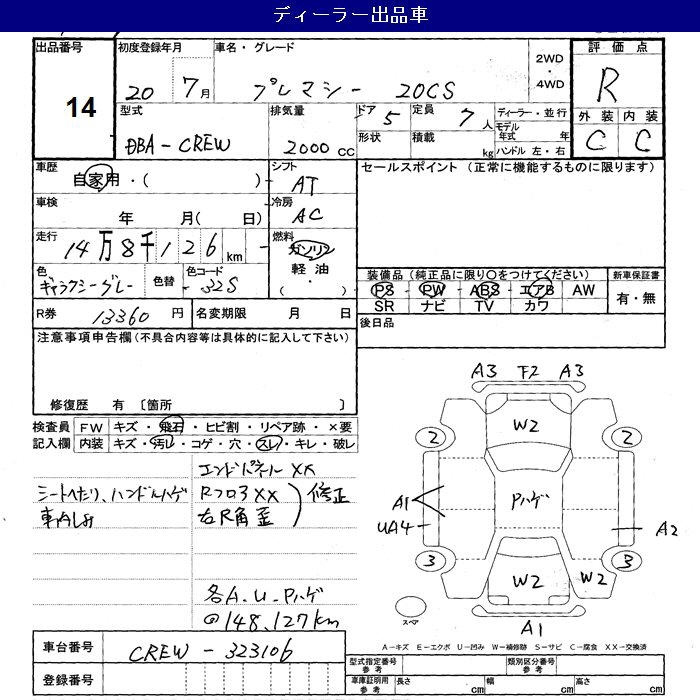 ディーラー出品車
出品番号 14
初度登録年月 20 7月
車名・グレード プレマシー 20CS
2WD・4WD
評価点 R
外装 C 内装 C
型式 DBA-CREW
排気量 2000 CC
ドア 5 定員 7人
形状 積載 kg
ディーラー・並行
モデル年式 年
ハンドル 左・右
車歴 自家用・( )
シフト AT
セールスポイント (正常に機能するものに限ります)
車検 年 月( 日)
冷房 AC
走行 14万8千126km
燃料 ガソリン 軽油 ( )
色 ギャラクシーグレー 色替 色コード 32S
装備品 (純正品に限り○をつけてください) 新車保証書
PS・PW・ABS・エアB・AW
SR ナビ TV カワ
有・無
R券 13360円 名変期限 月 日
後日品
注意事項申告欄(不具合内容等は具体的に記入して下さい)
修復歴 有 〔箇所 〕
検査員 FW キズ・飛石・ヒビ割・リペア跡・×要
記入欄 内装 キズ・汚レ・コゲ・穴・スレ・キレ・破レ
シートへたり、ハンドルハゲ
エンドパネルXX
Rフロア XX
右R角 歪
修正
各A.U.Pハゲ
@148,127km
A3 F2 A3
W2
2 2
A1 Pハゲ
UA4 A2
3 3
W2 W2
A1
スペア
A-キズ E-エクボ U-凹み W-補修跡 S-サビ C-腐食 XX-交換済
車台番号 CREW-323106
登録番号
型式指定番号 参考 類別区分番号 参考
車庫証明用 参考 長さ cm 幅 cm 高さ cm